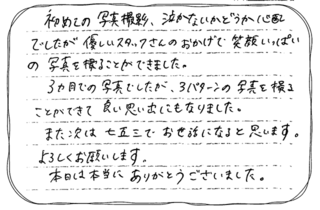 初めての写真撮影、泣かないかどうか心配
でしたが優しいスタッフさんのおかげで笑顔いっぱい
の写真を撮ることができました。
3カ月での写真でしたが、3パターンの写真を撮る
ことができて良い思い出にもなりました。
また次は七五三でお世話になると思います。
よろしくお願いします。
本日は本当にありがとうございました。